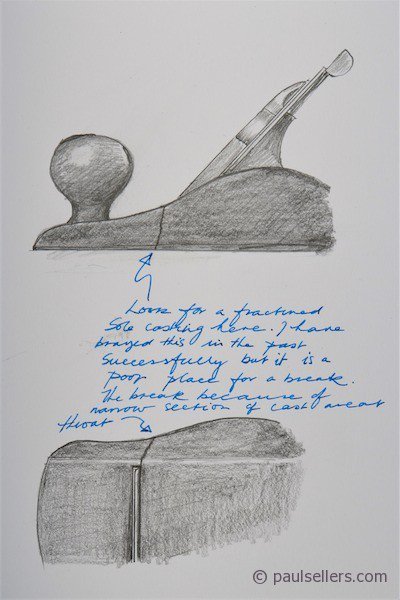 Look for a fractured
sole casting here. I have
brazed this in the past
successfully but it is a
poor place for a break.
The break because of
narrow section of cast at
throat
© paulsellers.com